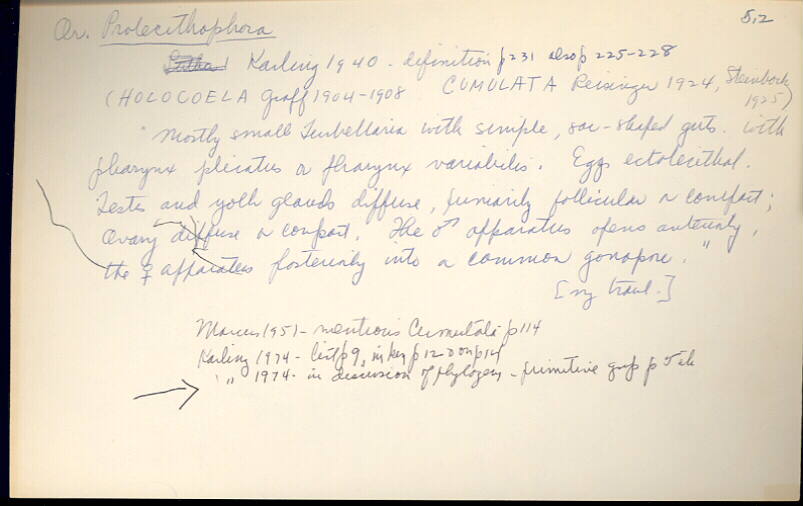 5,2
Or. Prolecithophora
Karling 1940 - definition p231 also p 225-228
(HOLOCOELA Graff 1904-1908 CUMULATA Reisinger 1924, Steinbock 1925)
"Mostly small Turbellaria with simple, sac-shaped guts. with
pharynx plicatus or pharynx variabilis. Eggs ectolecithal.
Testes and yolk glands diffuse, primarily follicular or compact;
Ovary diffuse or compact. The ♂ apparatus opens anteriorly,
the ♀ apparatus posteriorly into a common gonopore."
[my transl.]
Marcus 1951 - mentions Cumulata p114
Karling 1974 - list p9, in key p12 on p14
" 1974 - in discussion of phylogeny - primitive grp p